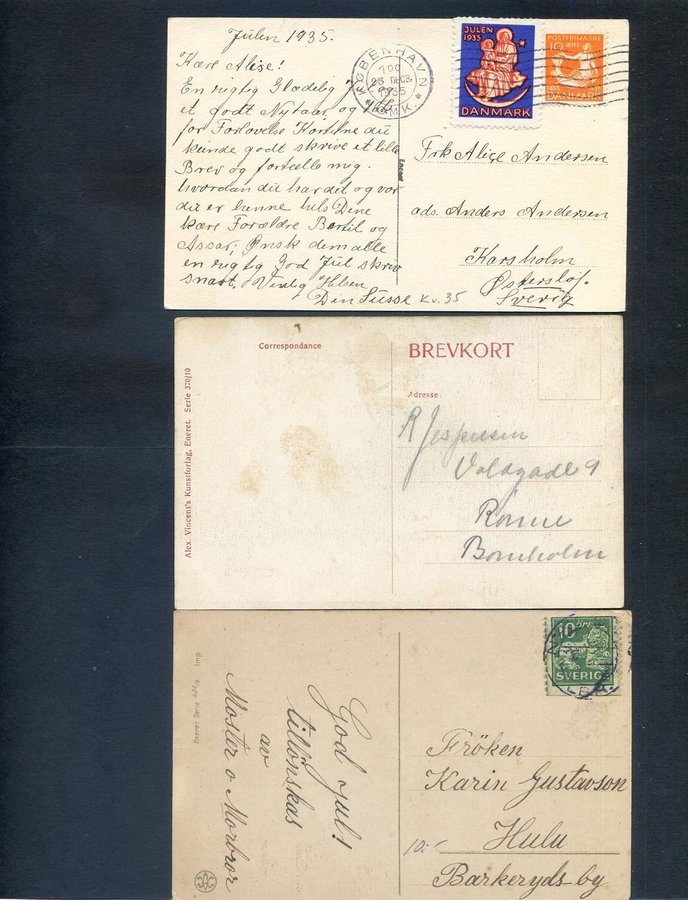 Julen 1935.
Kære Alise!
En rigtig Glædelig Jul
et godt Nytaar, og Tak
for Forlovelse Kortene du
kunde godt skrive et lille
Brev og fortælle mig
hvordan du har det og vor
du er henne hils Dine
kære Forældre Bertil og
Assar, Ønsk dem alle
en rigtig God Jul skriv
snart. Venlig Hilsen
Din Susse Kv. 35
KØBENHAVN
23 DEC
1935
OMK.
JULEN
1935
DANMARK
POSTFRIMÆRKE
10 ØRE
DANMARK
Eneret
Frk Alice Andersen
ads. Anders Andersen
Karsholm
Østerslöf.
Sverig
Correspondance
BREVKORT
Adresse
Alex. Vincent's Kunstforlag, Eneret. Serie 370/10
R Jespersen
Voldgade 9
Rönne
Bornholm
Eneret Serie Imp
God jul!
tillönskas
av
Moster o Morbror
10 ÖRE
SVERIGE
Fröken
Karin Gustavson
Hulu
Barkeryds-by
10:-